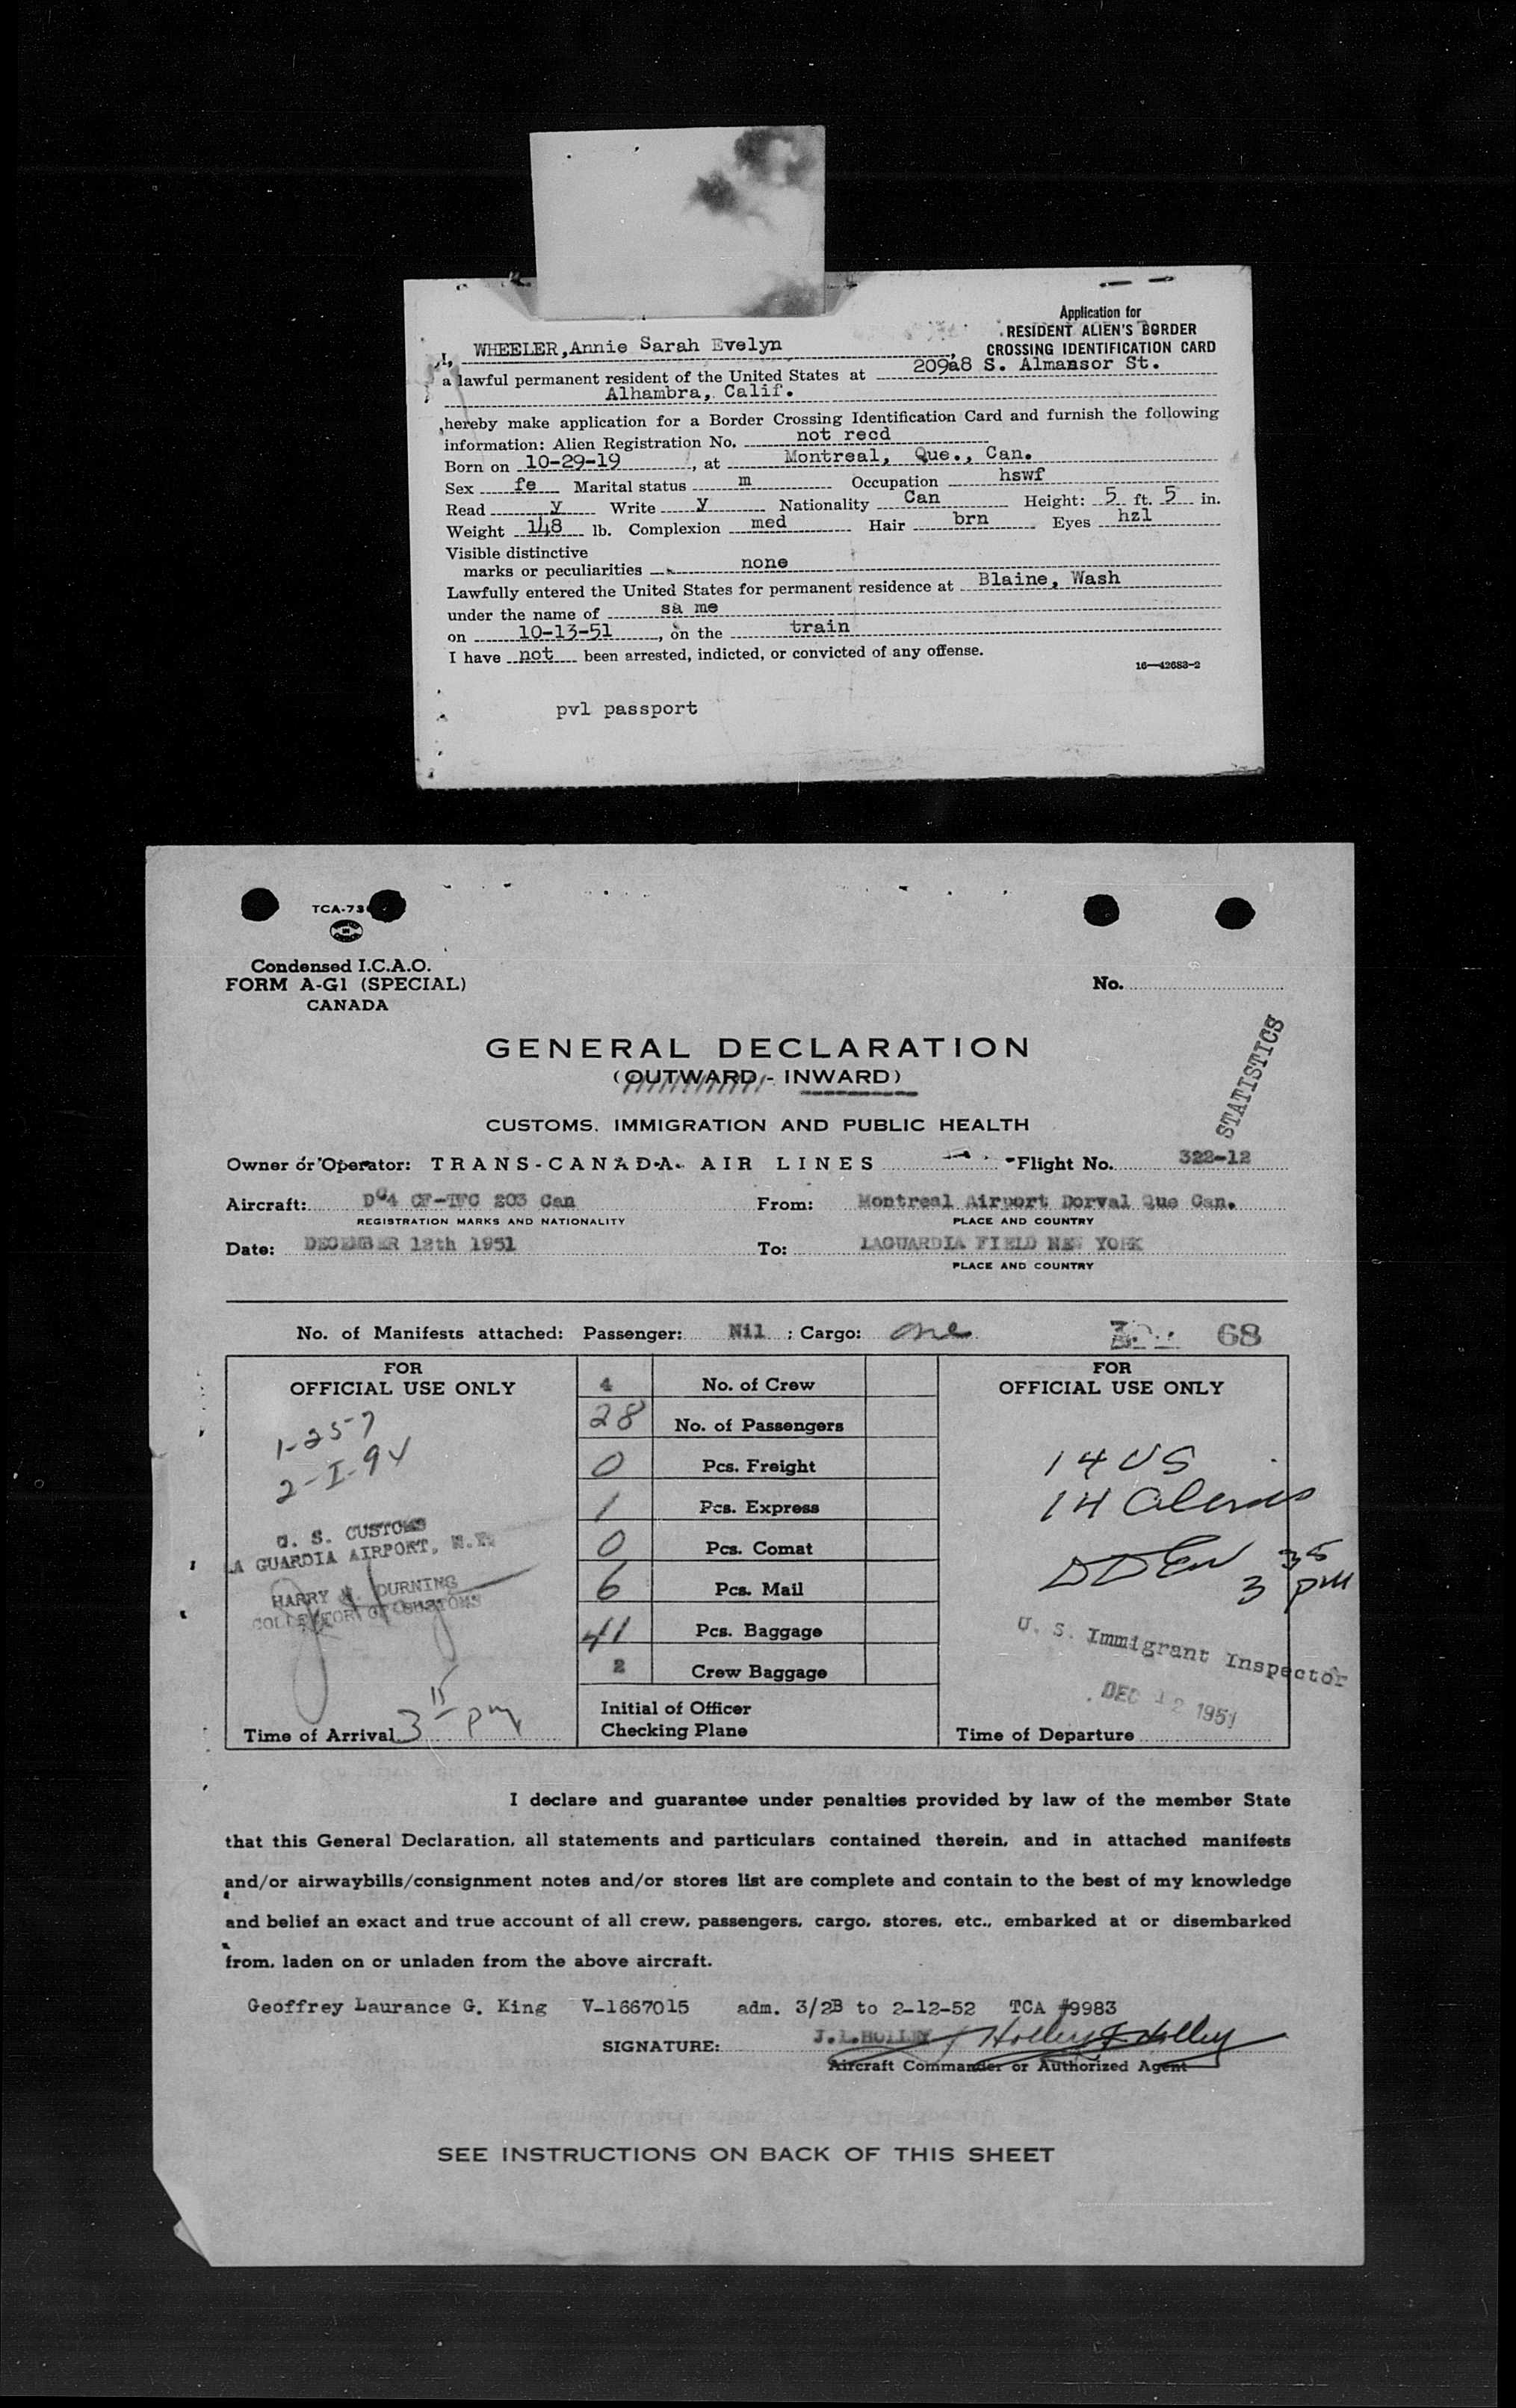 Application for
RESIDENT ALIEN'S BORDER
CROSSING IDENTIFICATION CARD
I, WHEELER, Annie Sarah Evelyn
a lawful permanent resident of the United States at 209a8 S. Almansor St.
Alhambra, Calif.
hereby make application for a Border Crossing Identification Card and furnish the following
information: Alien Registration No. not recd
Born on 10-29-19, at Montreal, Que., Can.
Sex fe Marital status m Occupation hswf
Read y Write y Nationality Can Height: 5 ft. 5 in.
Weight 148 lb. Complexion med Hair brn Eyes hzl
Visible distinctive
marks or peculiarities none
Lawfully entered the United States for permanent residence at Blaine, Wash
under the name of sa me
on 10-13-51, on the train
I have not been arrested, indicted, or convicted of any offense.
16—42683-2
pvl passport
TCA-73
Condensed I.C.A.O.
FORM A-G1 (SPECIAL)
CANADA
No.
GENERAL DECLARATION
(OUTWARD - INWARD)
STATISTICS
CUSTOMS, IMMIGRATION AND PUBLIC HEALTH
Owner or Operator: TRANS-CANADA AIR LINES Flight No. 322-12
Aircraft: DC4 CF-TFC 203 Can From: Montreal Airport Dorval Que Can.
REGISTRATION MARKS AND NATIONALITY PLACE AND COUNTRY
Date: DECEMBER 12th 1951 To: LAGUARDIA FIELD NEW YORK
PLACE AND COUNTRY
No. of Manifests attached: Passenger: Nil ; Cargo: one
68
FOR
OFFICIAL USE ONLY
1-257
2-I-94
U. S. CUSTOMS
LA GUARDIA AIRPORT, N.Y.
HARRY M. DURNING
COLLECTOR OF CUSTOMS
Time of Arrival 3 15 pm
4 No. of Crew
28 No. of Passengers
0 Pcs. Freight
1 Pcs. Express
0 Pcs. Comat
6 Pcs. Mail
41 Pcs. Baggage
2 Crew Baggage
Initial of Officer
Checking Plane
FOR
OFFICIAL USE ONLY
14 US
14 Aliens
3 35 pm
U. S. Immigrant Inspector
DEC 12 1951
Time of Departure
I declare and guarantee under penalties provided by law of the member State
that this General Declaration, all statements and particulars contained therein, and in attached manifests
and/or airwaybills/consignment notes and/or stores list are complete and contain to the best of my knowledge
and belief an exact and true account of all crew, passengers, cargo, stores, etc., embarked at or disembarked
from, laden on or unladen from the above aircraft.
Geoffrey Laurance G. King V-1667015 adm. 3/2B to 2-12-52 TCA #9983
SIGNATURE: J.L.HOLLEY J Holley J. Holley
Aircraft Commander or Authorized Agent
SEE INSTRUCTIONS ON BACK OF THIS SHEET